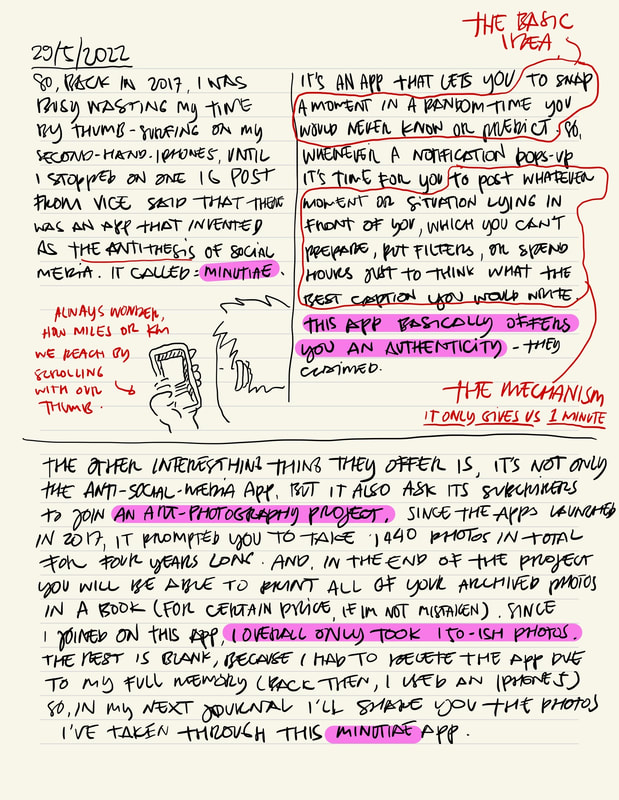 29/5/2022
SO, BACK IN 2017, I WAS
BUSY WASTING MY TIME
BY THUMB-SURFING ON MY
SECOND-HAND-IPHONE5, UNTIL
I STOPPED ON ONE IG POST
FROM VICE SAID THAT THERE
WAS AN APP THAT INVENTED
AS THE ANTITHESIS OF SOCIAL
MEDIA. IT CALLED: MINUTIAE.
ALWAYS WONDER,
HOW MILES OR KM
WE REACH BY
SCROLLING
WITH OUR
THUMB.
THE BASIC
IDEA
IT'S AN APP THAT LETS YOU TO SNAP
A MOMENT IN A RANDOM-TIME YOU
WOULD NEVER KNOW OR PREDICT. SO,
WHENEVER A NOTIFICATION POPS-UP
IT'S TIME FOR YOU TO POST WHATEVER
MOMENT OR SITUATION LYING IN
FRONT OF YOU, WHICH YOU CAN'T
PREPARE, PUT FILTERS, OR SPEND
HOURS JUST TO THINK WHAT THE
BEST CAPTION YOU WOULD WRITE.
THIS APP BASICALLY OFFERS
YOU AN AUTHENTICITY - THEY
CLAIMED.
THE MECHANISM
IT ONLY GIVES US 1 MINUTE
THE OTHER INTERESTHING THING THEY OFFER IS, IT'S NOT ONLY
THE ANTI-SOCIAL-MEDIA APP, BUT IT ALSO ASK ITS SUBCRIBERS
TO JOIN AN ART-PHOTOGRAPHY PROJECT. SINCE THE APPS LAUNCHED
IN 2017, IT PROMPTED YOU TO TAKE 1440 PHOTOS IN TOTAL
FOR FOUR YEARS LONG. AND, IN THE END OF THE PROJECT
YOU WILL BE ABLE TO PRINT ALL OF YOUR ARCHIVED PHOTOS
IN A BOOK (FOR CERTAIN PRICE, IF IM NOT MISTAKEN). SINCE
I JOINED ON THIS APP, I OVERALL ONLY TOOK 150-ISH PHOTOS.
THE REST IS BLANK, BECAUSE I HAD TO DELETE THE APP DUE
TO MY FULL MEMORY (BACK THEN, I USED AN IPHONE 5)
SO, IN MY NEXT JOURNAL I'LL SHARE YOU THE PHOTOS
I'VE TAKEN THROUGH THIS MINUTIAE APP.